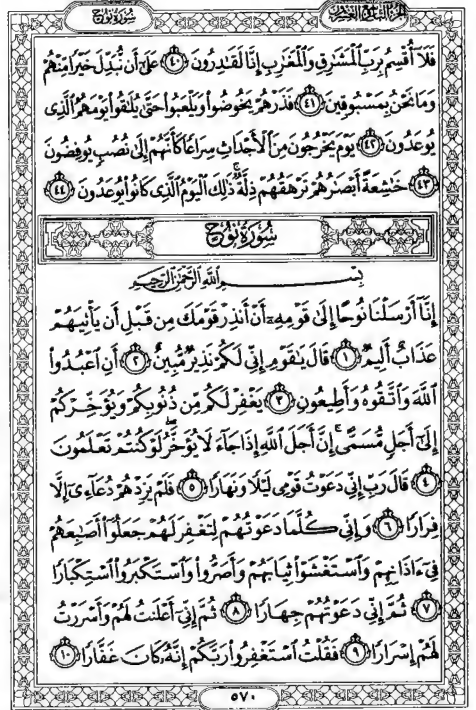 سُورَةُ نُوحٍ
الجُزْءُ التَّاسِعُ وَالعِشْرُونَ
فَلَا أُقْسِمُ بِرَبِّ الْمَشَارِقِ وَالْمَغَارِبِ إِنَّا لَقَادِرُونَ ٤٠ عَلَىٰ أَن نُّبَدِّلَ خَيْرًا مِّنْهُمْ
وَمَا نَحْنُ بِمَسْبُوقِينَ ٤١ فَذَرْهُمْ يَخُوضُوا۟ وَيَلْعَبُوا۟ حَتَّىٰ يُلَاقُوا۟ يَوْمَهُمُ الَّذِى
يُوعَدُونَ ٤٢ يَوْمَ يَخْرُجُونَ مِنَ الْأَجْدَاثِ سِرَاعًا كَأَنَّهُمْ إِلَىٰ نُصُبٍ يُوفِضُونَ
٤٣ خَاشِعَةً أَبْصَارُهُمْ تَرْهَقُهُمْ ذِلَّةٌ ۚ ذَٰلِكَ الْيَوْمُ الَّذِى كَانُوا۟ يُوعَدُونَ ٤٤
سُورَةُ نُوحٍ
بِسْمِ اللَّهِ الرَّحْمَٰنِ الرَّحِيمِ
إِنَّا أَرْسَلْنَا نُوحًا إِلَىٰ قَوْمِهِۦ أَنْ أَنذِرْ قَوْمَكَ مِن قَبْلِ أَن يَأْتِيَهُمْ
عَذَابٌ أَلِيمٌ ١ قَالَ يَٰقَوْمِ إِنِّى لَكُمْ نَذِيرٌ مُّبِينٌ ٢ أَنِ اعْبُدُوا۟
اللَّهَ وَاتَّقُوهُ وَأَطِيعُونِ ٣ يَغْفِرْ لَكُم مِّن ذُنُوبِكُمْ وَيُؤَخِّرْكُمْ
إِلَىٰ أَجَلٍ مُّسَمًّى ۚ إِنَّ أَجَلَ اللَّهِ إِذَا جَاءَ لَا يُؤَخَّرُ ۖ لَوْ كُنتُمْ تَعْلَمُونَ
٤ قَالَ رَبِّ إِنِّى دَعَوْتُ قَوْمِى لَيْلًا وَنَهَارًا ٥ فَلَمْ يَزِدْهُمْ دُعَاءِىٓ إِلَّا
فِرَارًا ٦ وَإِنِّى كُلَّمَا دَعَوْتُهُمْ لِتَغْفِرَ لَهُمْ جَعَلُوا۟ أَصَابِعَهُمْ
فِىٓ ءَاذَانِهِمْ وَاسْتَغْشَوْا۟ ثِيَابَهُمْ وَأَصَرُّوا۟ وَاسْتَكْبَرُوا۟ اسْتِكْبَارًا
٧ ثُمَّ إِنِّى دَعَوْتُهُمْ جِهَارًا ٨ ثُمَّ إِنِّىٓ أَعْلَنتُ لَهُمْ وَأَسْرَرْتُ
لَهُمْ إِسْرَارًا ٩ فَقُلْتُ اسْتَغْفِرُوا۟ رَبَّكُمْ إِنَّهُۥ كَانَ غَفَّارًا ١٠
٥٧٠